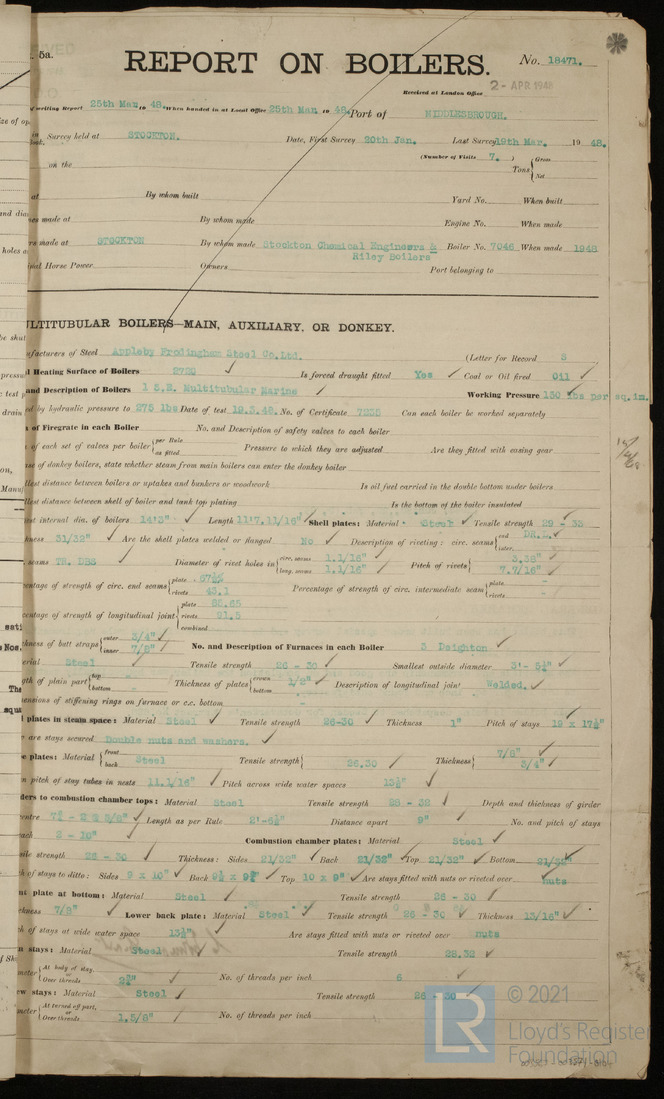 5a.
REPORT ON BOILERS.
No. 18471.
Received at London Office
2- APR 1948
writing Report 25th Mar. 19 48. When handed in at Local Office 25th Mar. 19 48. Port of MIDDLESBROUGH.
Survey held at STOCKTON. Date, First Survey 20th Jan. Last Survey 19th Mar. 19 48.
(Number of Visits 7. )
on the Tons Gross Net
at By whom built Yard No. When built
made at By whom made Engine No. When made
made at STOCKTON By whom made Stockton Chemical Engineers & Riley Boilers Boiler No. 7046 When made 1948
Horse Power Owners Port belonging to
MULTITUBULAR BOILERS—MAIN, AUXILIARY, OR DONKEY.
Manufacturers of Steel Appleby Frodingham Steel Co. Ltd. (Letter for Record S
Heating Surface of Boilers Is forced draught fitted Yes Coal or Oil fired Oil
and Description of Boilers 1 S.E. Multitubular Marine Working Pressure 150 lbs per sq.in.
by hydraulic pressure to 275 lbs Date of test 19.3.48. No. of Certificate Can each boiler be worked separately
of Firegrate in each Boiler No. and Description of safety valves to each boiler
of each set of valves per boiler per Rule as fitted Pressure to which they are adjusted Are they fitted with easing gear
of donkey boilers, state whether steam from main boilers can enter the donkey boiler
distance between boilers or uptakes and bunkers or woodwork Is oil fuel carried in the double bottom under boilers
distance between shell of boiler and tank top plating Is the bottom of the boiler insulated
internal dia. of boilers 14'3" Length 11'7.11/16" Shell plates: Material Steel Tensile strength 29 - 33
31/32" Are the shell plates welded or flanged No Description of riveting: circ. seams end inter.
seams TR. DBS Diameter of rivet holes in circ. seams 1.1/16" long. seams 1.1/16" Pitch of rivets 3.38" 7.7/16"
percentage of strength of circ. end seams plate rivets 43.1 Percentage of strength of circ. intermediate seam plate rivets
percentage of strength of longitudinal joint plate 85.65 rivets 91.5 combined
thickness of butt straps outer 3/4" inner 7/8" No. and Description of Furnaces in each Boiler 3 Deighton
Steel Tensile strength 26 - 30 Smallest outside diameter 3'- 5¼"
of plain part top bottom Thickness of plates crown bottom Description of longitudinal joint Welded.
dimensions of stiffening rings on furnace or c.c. bottom
plates in steam space: Material Steel Tensile strength 26-30 Thickness 1" Pitch of stays
are stays secured Double nuts and washers.
plates: Material front back Steel Tensile strength 26.30 Thickness 7/8" 3/4"
pitch of stay tubes in nests 11.1/16" Pitch across wide water spaces 13½"
to combustion chamber tops: Material Steel Tensile strength 28 - 32 Depth and thickness of girder
centre Length as per Rule 2'-6½" Distance apart 9" No. and pitch of stays
each 2 - 10" Combustion chamber plates: Material Steel
strength 26 - 30 Thickness: Sides 21/32" Back 21/32" Top 21/32" Bottom 21/32"
of stays to ditto: Sides 9 x 10" Back Top 10 x 9" Are stays fitted with nuts or riveted over nuts
plate at bottom: Material Steel Tensile strength 26 - 30
7/8" Lower back plate: Material Steel Tensile strength 26 - 30 Thickness 13/16"
of stays at wide water space 13½" Are stays fitted with nuts or riveted over nuts
stays: Material Steel Tensile strength 28.32
At body of stay, or Over threads No. of threads per inch 6
stays: Material Steel Tensile strength 26 - 30
At turned off part, or Over threads 1.5/8" No. of threads per inch
LR
© 2021
Lloyd's Register
Foundation